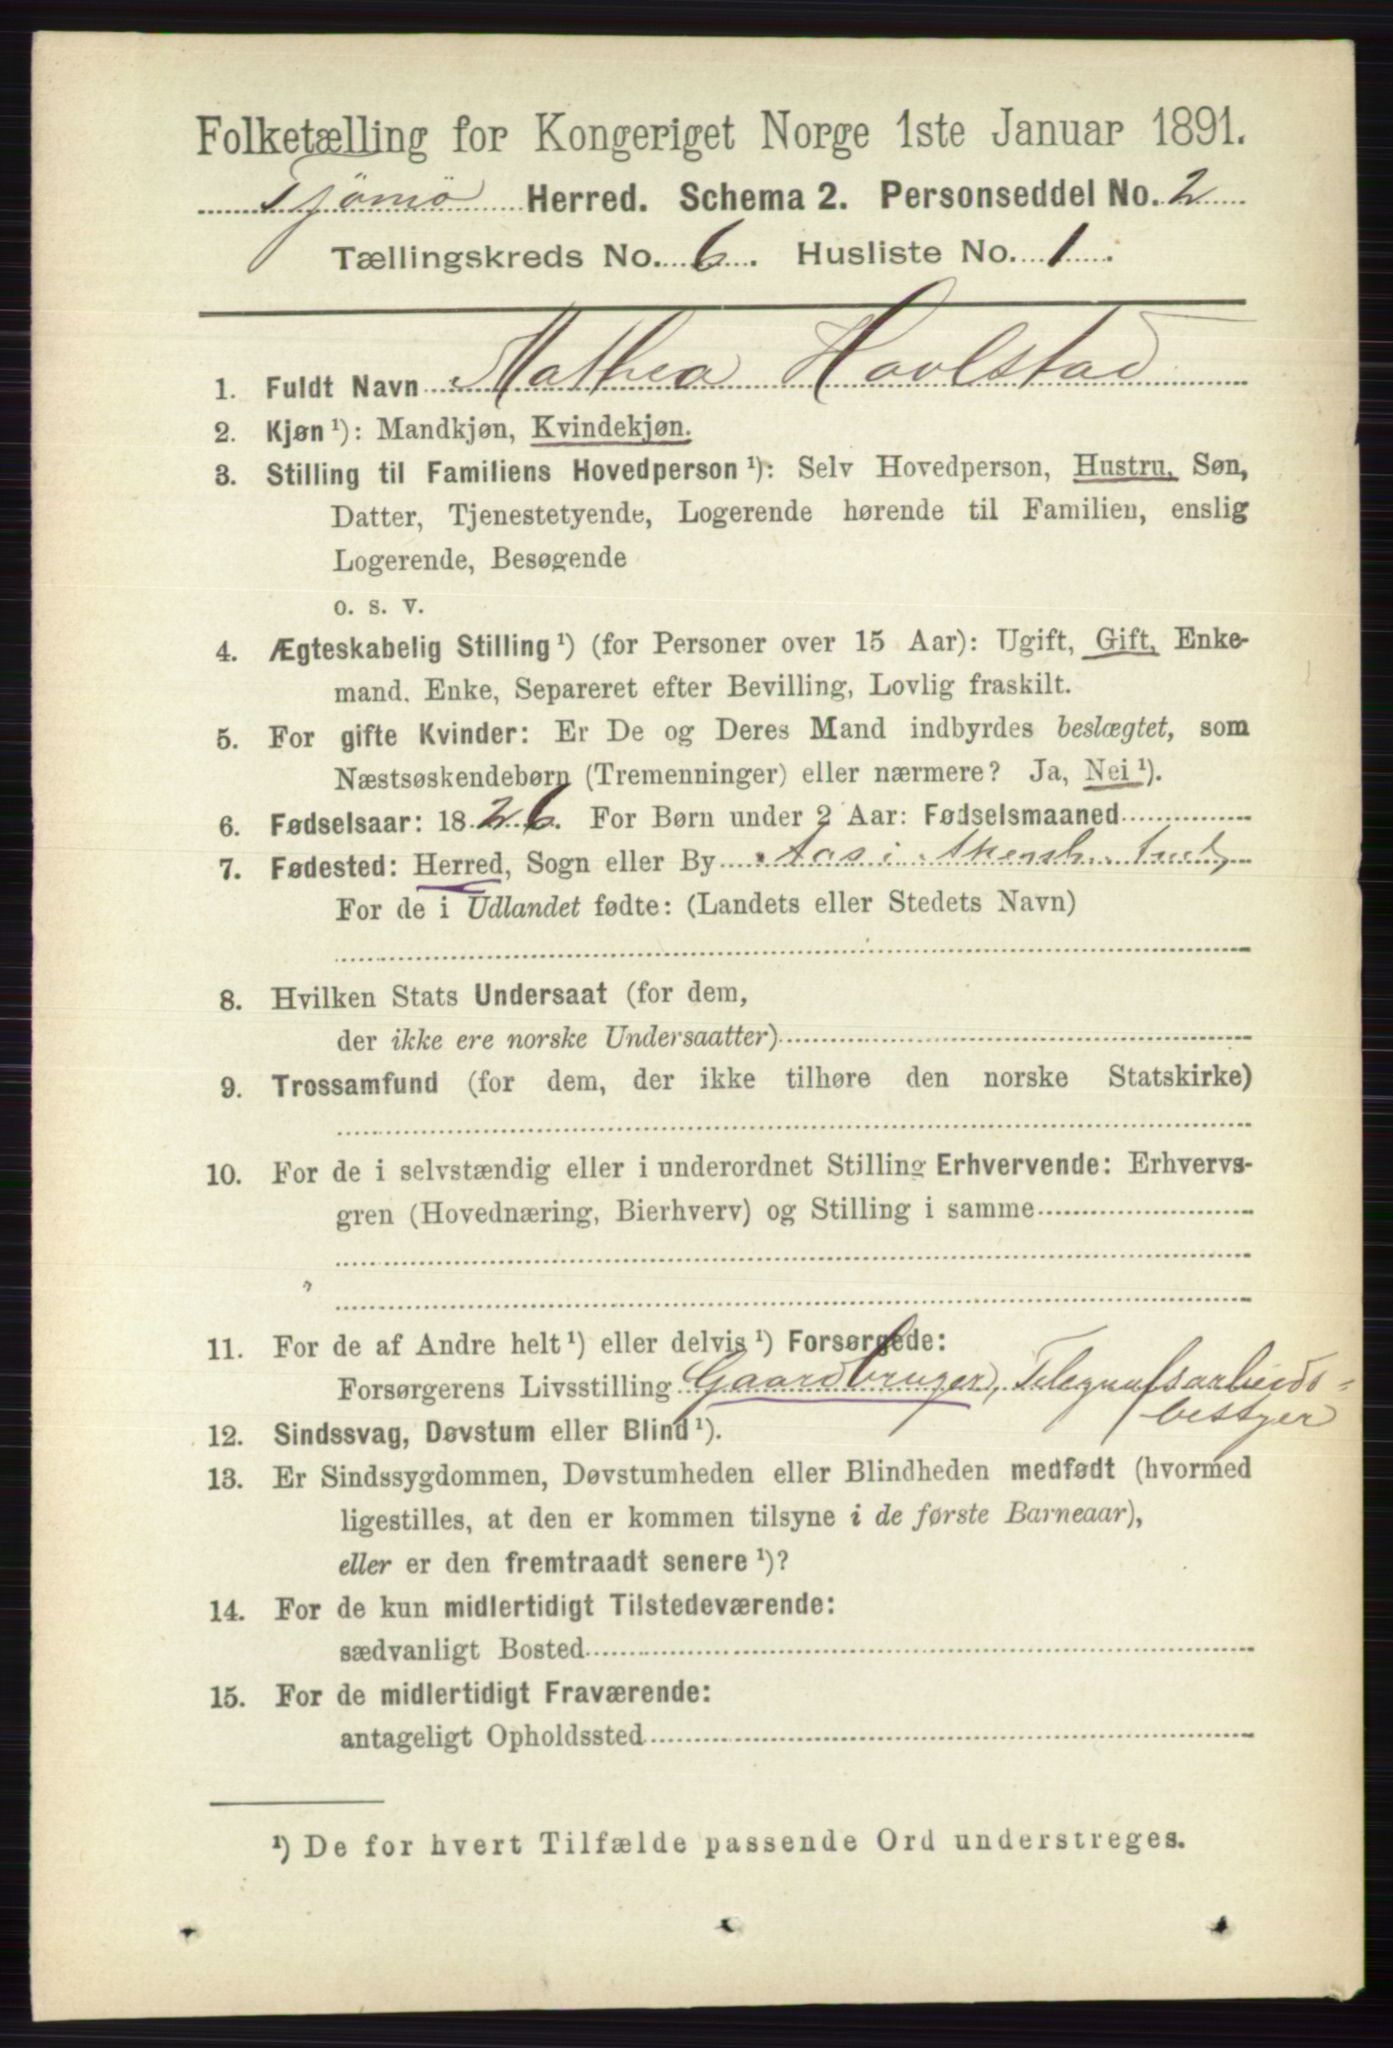 Folketælling for Kongeriget Norge 1ste Januar 1891.
Tjömö Herred. Schema 2. Personseddel No. 2
Tællingskreds No. 6. Husliste No. 1.
1. Fuldt Navn Mathea Havlstad
2. Kjøn ¹): Mandkjøn, Kvindekjøn.
3. Stilling til Familiens Hovedperson ¹): Selv Hovedperson, Hustru, Søn,
Datter, Tjenestetyende, Logerende hørende til Familien, enslig
Logerende, Besøgende
o. s. v.
4. Ægteskabelig Stilling ¹) (for Personer over 15 Aar): Ugift, Gift, Enke-
mand, Enke, Separeret efter Bevilling, Lovlig fraskilt.
5. For gifte Kvinder: Er De og Deres Mand indbyrdes beslægtet, som
Næstsøskendebørn (Tremenninger) eller nærmere? Ja, Nei ¹).
6. Fødselsaar: 1826. For Børn under 2 Aar: Fødselsmaaned
7. Fødested: Herred, Sogn eller By Aas i
For de i Udlandet fødte: (Landets eller Stedets Navn)
8. Hvilken Stats Undersaat (for dem,
der ikke ere norske Undersaatter)
9. Trossamfund (for dem, der ikke tilhøre den norske Statskirke)
10. For de i selvstændig eller i underordnet Stilling Erhvervende: Erhvervs-
gren (Hovednæring, Bierhverv) og Stilling i samme
11. For de af Andre helt ¹) eller delvis ¹) Forsørgede:
Forsørgerens Livsstilling Gaardbruger, Telegrafsarbeids-
bestyer
12. Sindssvag, Døvstum eller Blind ¹).
13. Er Sindssygdommen, Døvstumheden eller Blindheden medfødt (hvormed
ligestilles, at den er kommen tilsyne i de første Barneaar),
eller er den fremtraadt senere ¹)?
14. For de kun midlertidigt Tilstedeværende:
sædvanligt Bosted
15. For de midlertidigt Fraværende:
antageligt Opholdssted
¹) De for hvert Tilfælde passende Ord understreges.